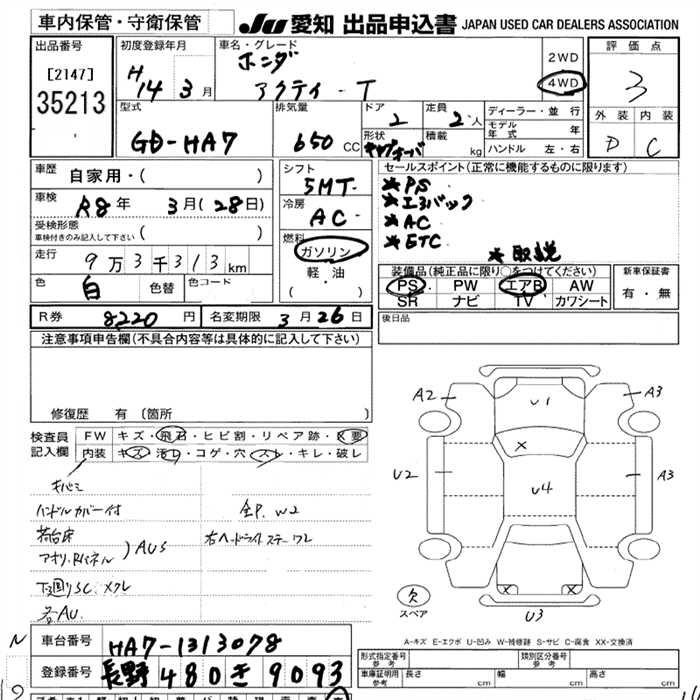 車内保管・守衛保管
JU 愛知 出品申込書 JAPAN USED CAR DEALERS ASSOCIATION
出品番号
[2147]
35213
初度登録年月
H14 3月
車名・グレード
ホンダ
アクティ-T
2WD
4WD
評価点
3
外装 内装
D C
型式
GD-HA7
排気量
650 CC
ドア
2
定員
2人
形状
キャブオーバ
積載
kg
ディーラー・並行
モデル年式 年
ハンドル 左・右
車歴
自家用・( )
車検
R8年 3月(28日)
受検形態
車検付きのみ記入して下さい ( )
走行
9万3千313km
色
白
色替
色コード
シフト
5MT
冷房
AC
燃料
ガソリン
軽・油
( ・ )
セールスポイント(正常に機能するものに限ります)
★PS
★エアバック
★AC
★ETC
★取説
装備品(純正品に限り○をつけてください)
PS PW エアB AW
SR ナビ TV カワシート
新車保証書
有・無
R券 8220円
名変期限 3月26日
後日品
注意事項申告欄(不具合内容等は具体的に記入して下さい)
修復歴 有(箇所 )
検査員
記入欄
FW キズ・飛石・ヒビ割・リペア跡・X要
内装 キズ・汚レ・コゲ・穴・スレ・キレ・破レ
キバミ
ハンドルカバー付
全P.W2
荷台床
アオリ.Rパネル)AUS
右ヘッドライトステーワレ
下廻りSC.メクレ
各AU.
A2
U1
A3
X
U2
U4
A3
X X
U3
欠
スペア
A-キズ E-エクボ U-凹み W-補修跡 S-サビ C-腐食 XX-交換済
N
車台番号 HA7-1313078
登録番号 長野480き9093
形式指定番号
参考
類別区分番号
参考
車庫証明用
参考
長さ cm
幅 cm
高さ cm